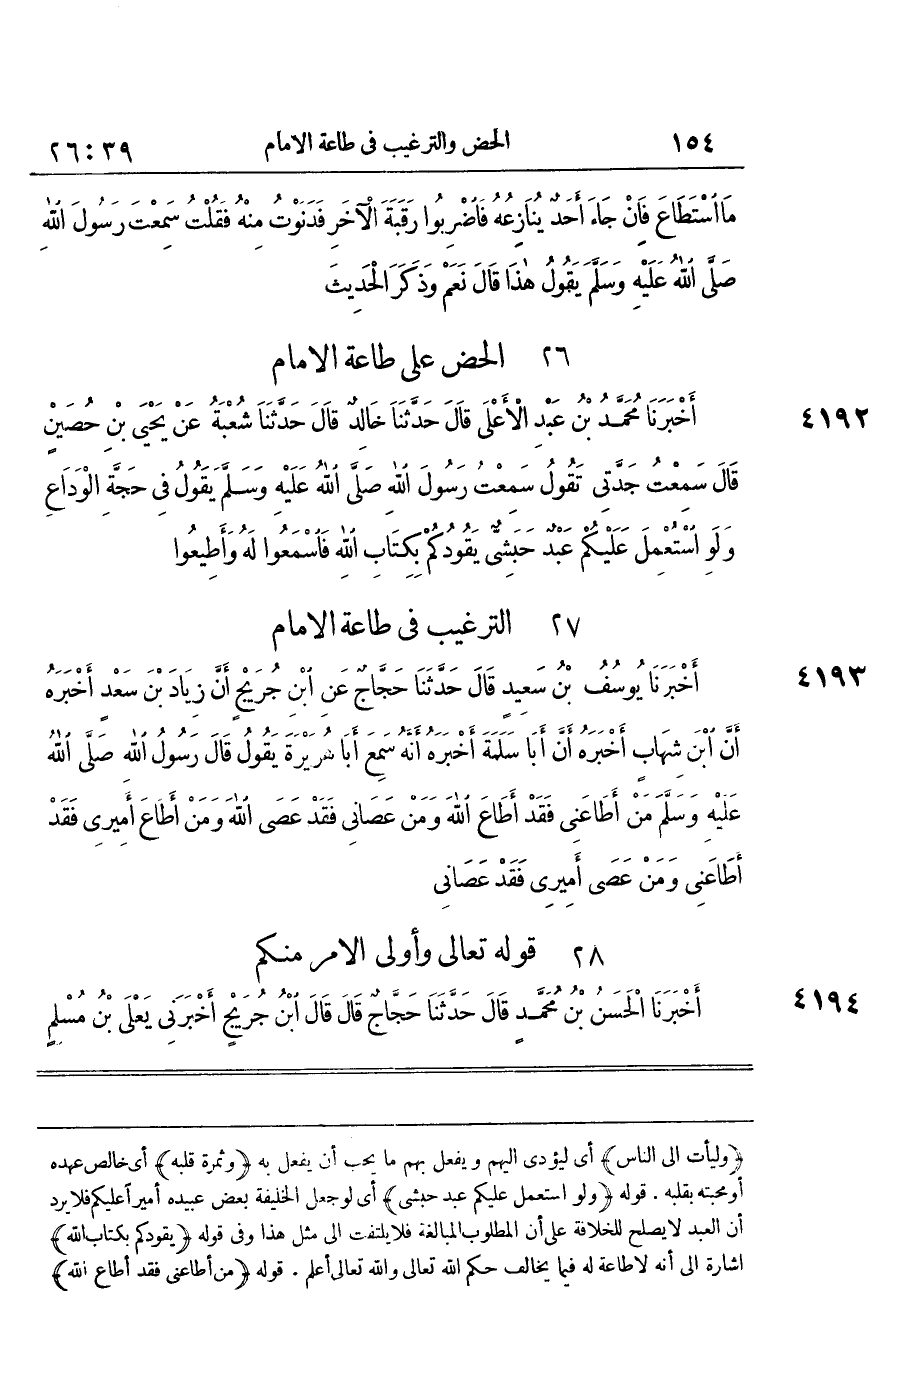 ١٥٤ الحض والترغيب فى طاعة الامام ٣٩:٢٦
مَا اسْتَطَاعَ فَإِنْ جَاءَ أَحَدٌ يُنَازِعُهُ فَاضْرِبُوا رَقَبَةَ الْآخَرِ فَدَنَوْتُ مِنْهُ فَقُلْتُ سَمِعْتَ رَسُولَ اللّٰهِ
صَلَّى اللّٰهُ عَلَيْهِ وَسَلَّمَ يَقُولُ هٰذَا قَالَ نَعَمْ وَذَكَرَ الْحَدِيثَ
٢٦ الحض على طاعة الامام
٤١٩٢ أَخْبَرَنَا مُحَمَّدُ بْنُ عَبْدِ الْأَعْلَى قَالَ حَدَّثَنَا خَالِدٌ قَالَ حَدَّثَنَا شُعْبَةُ عَنْ يَحْيَى بْنِ حُصَيْنٍ
قَالَ سَمِعْتُ جَدَّتِى تَقُولُ سَمِعْتُ رَسُولَ اللّٰهِ صَلَّى اللّٰهُ عَلَيْهِ وَسَلَّمَ يَقُولُ فِى حَجَّةِ الْوَدَاعِ
وَلَوِ اسْتُعْمِلَ عَلَيْكُمْ عَبْدٌ حَبَشِىٌّ يَقُودُكُمْ بِكِتَابِ اللّٰهِ فَاسْمَعُوا لَهُ وَأَطِيعُوا
٢٧ الترغيب فى طاعة الامام
٤١٩٣ أَخْبَرَنَا يُوسُفُ بْنُ سَعِيدٍ قَالَ حَدَّثَنَا حَجَّاجٌ عَنِ ابْنِ جُرَيْجٍ أَنَّ زِيَادَ بْنَ سَعْدٍ أَخْبَرَهُ
أَنَّ ابْنَ شِهَابٍ أَخْبَرَهُ أَنَّ أَبَا سَلَمَةَ أَخْبَرَهُ أَنَّهُ سَمِعَ أَبَا هُرَيْرَةَ يَقُولُ قَالَ رَسُولُ اللّٰهِ صَلَّى اللّٰهُ
عَلَيْهِ وَسَلَّمَ مَنْ أَطَاعَنِى فَقَدْ أَطَاعَ اللّٰهَ وَمَنْ عَصَانِى فَقَدْ عَصَى اللّٰهَ وَمَنْ أَطَاعَ أَمِيرِى فَقَدْ
أَطَاعَنِى وَمَنْ عَصَى أَمِيرِى فَقَدْ عَصَانِى
٢٨ قوله تعالى وأولى الامر منكم
٤١٩٤ أَخْبَرَنَا الْحَسَنُ بْنُ مُحَمَّدٍ قَالَ حَدَّثَنَا حَجَّاجٌ قَالَ قَالَ ابْنُ جُرَيْجٍ أَخْبَرَنِى يَعْلَى بْنُ مُسْلِمٍ
﴿وليأت الى الناس﴾ أى ليؤدى اليهم ويفعل بهم ما يحب أن يفعل به ﴿وثمرة قلبه﴾ أى خالص عهده
أو محبته بقلبه . قوله ﴿ولو استعمل عليكم عبد حبشى﴾ أى لو جعل الخليفة بعض عبيده أميراً عليكم فلا يرد
أن العبد لا يصلح للخلافة على أن المطلوب المبالغة فلا يلتفت الى مثل هذا وفى قوله ﴿يقودكم بكتاب الله﴾
اشارة الى أنه لا طاعة له فيما يخالف حكم الله تعالى والله تعالى أعلم . قوله ﴿من أطاعنى فقد أطاع الله﴾